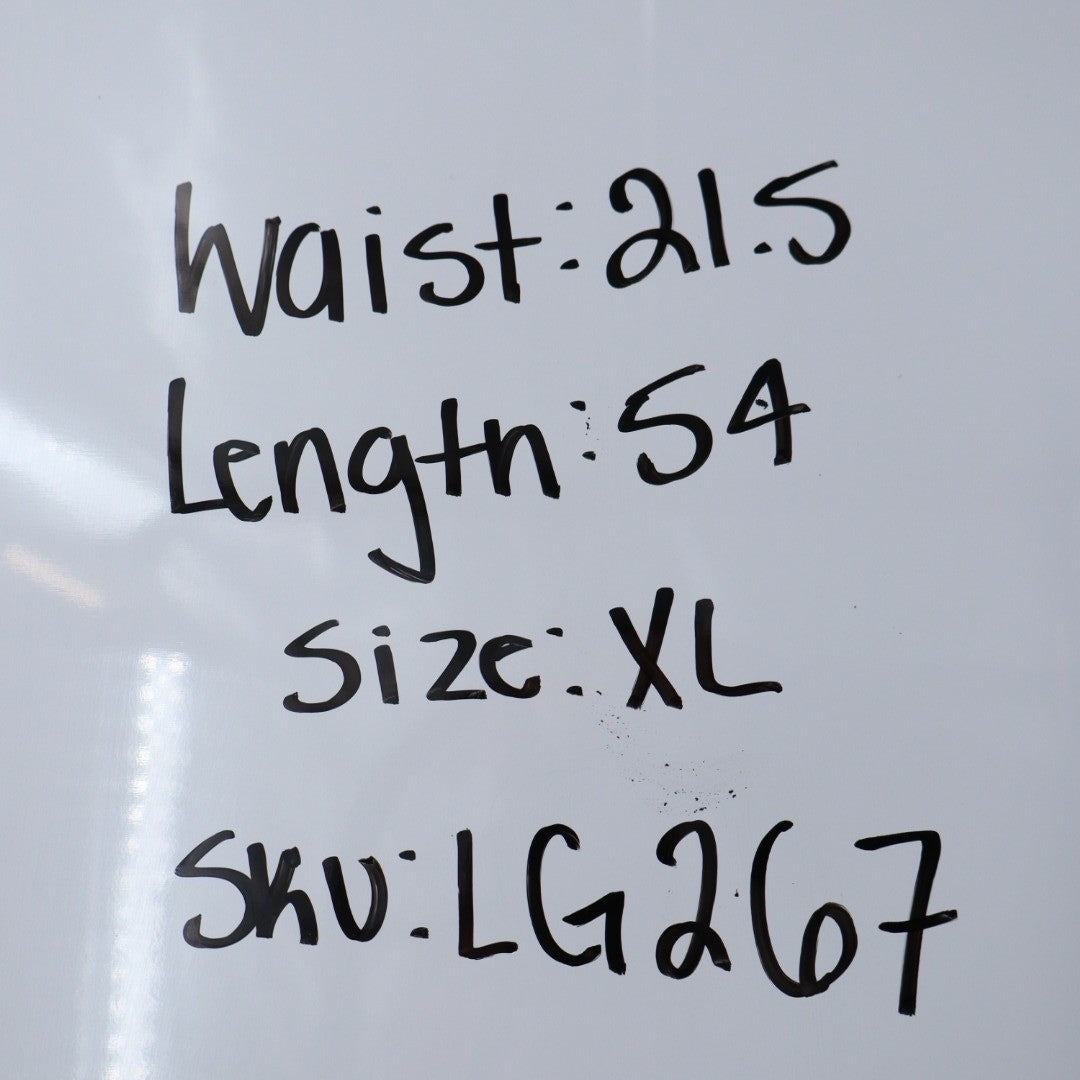 Waist: 21.5
Length: 54
Size: XL
SKU: LG267